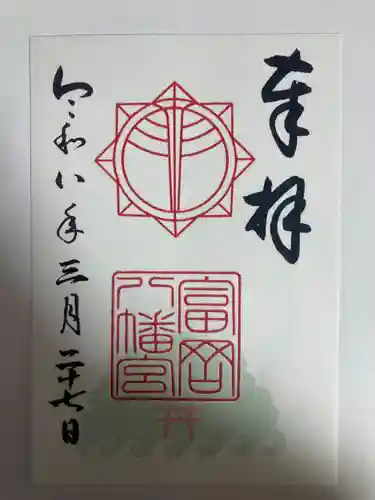 奉拝
富岡
八幡宮
令和八年三月二十七日